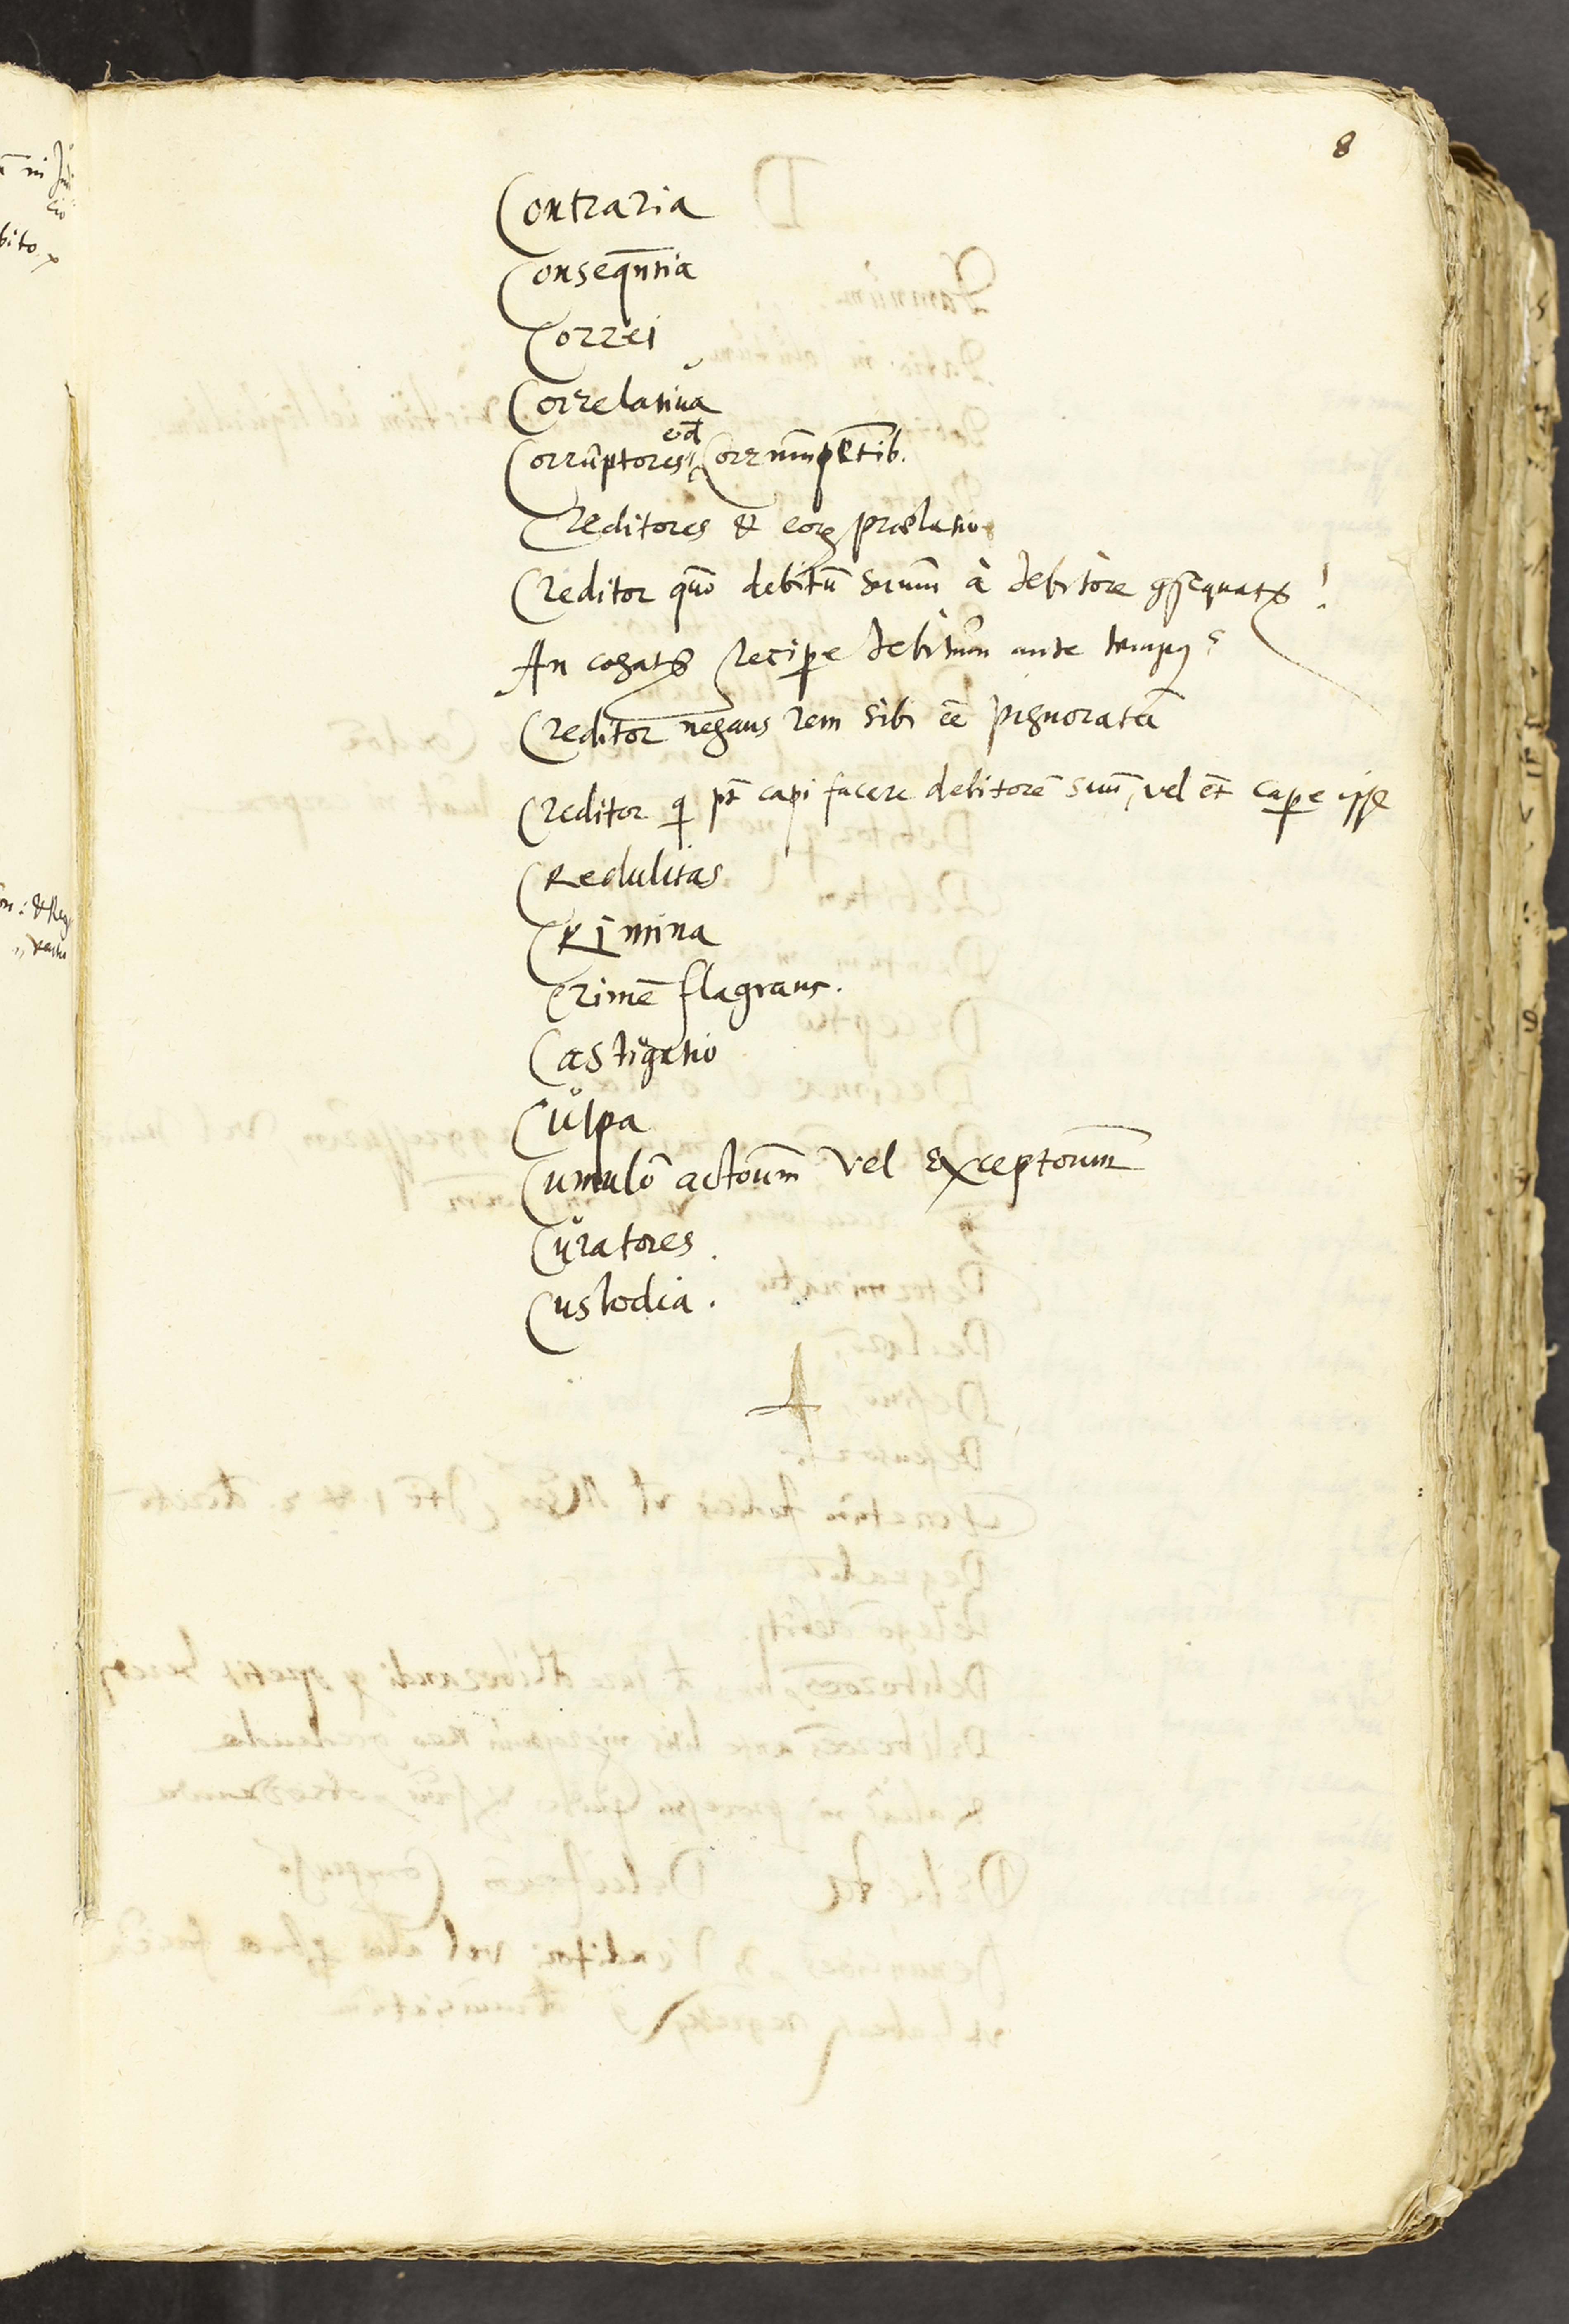 8
Contraria
Conseqn̄tia
Correi
Correlatiua
Corrūptores Corrumpētib.
Creditores & eorꝝ prælatio
Creditor quō debitū suum à debitore ꝯsequatr!
An cogatr recipe debitum ante tempꝯ?
Creditor negans rem sibi ēe pignoratā
Creditor qi pt̄ capi facere debitorē suū, vel et̄ cape ipse
Credulitas
Crimina
Crimē flagrans.
Castigatio
Culpa
Cumulō actoum̄ vel exceptoum̄
Curatores.
Custodia.